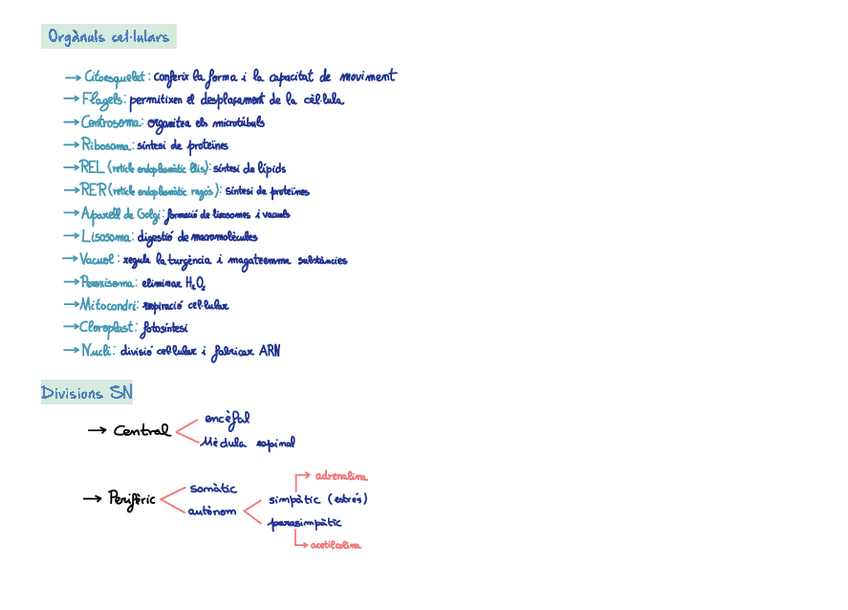 Orgànuls cel·lulars
→ Citoesquelet: conferix la forma i la capacitat de moviment
→ Flagels: permitixen el desplaçament de la cèl·lula
→ Centrosoma: organitza els microtúbuls
→ Ribosoma: síntesi de proteïnes
→ REL (reticle endoplasmàtic llis): síntesi de lípids
→ RER (reticle endoplasmàtic rugós): síntesi de proteïnes
→ Aparell de Golgi: formació de lisosomes i vacuols
→ Lisosoma: digestió de macromolècules
→ Vacuol: regula la turgència i magatzemma substàncies
→ Peroxisoma: eliminar H₂O₂
→ Mitocondri: respiració cel·lular
→ Cloroplast: fotosíntesi
→ Nucli: divisió cel·lular i fabricar ARN
Divisions SN
→ Central
encèfal
Mèdula espinal
→ Perifèric
somàtic
autònom
adrenalina
simpàtic (estrés)
parasimpàtic
acetilcolina